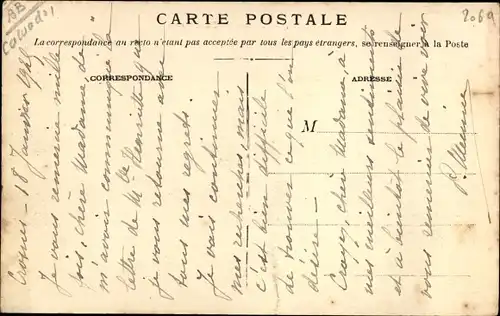 BB
Calvados
2069
CARTE POSTALE
La correspondance au recto n'étant pas acceptée par tous les pays étrangers, se renseigner à la Poste
CORRESPONDANCE
ADRESSE
M
18 Janvier
Je vous remercie mille
fois, chère Madame de
m'avoir communiqué la
lettre de Mlle Henriette que
je vous retourne avec
tous mes regrets.
Je vais continuer
mes recherches, mais
c'est bien difficile
de trouver ce que l'on
désire -
Croyez, chère Madame, à
mes meilleurs sentiments
et à bientôt le plaisir de
vous remercier de vive voix